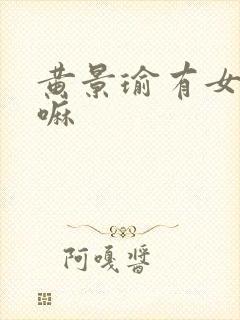 黄景瑜有女
嘛
阿嘎酱